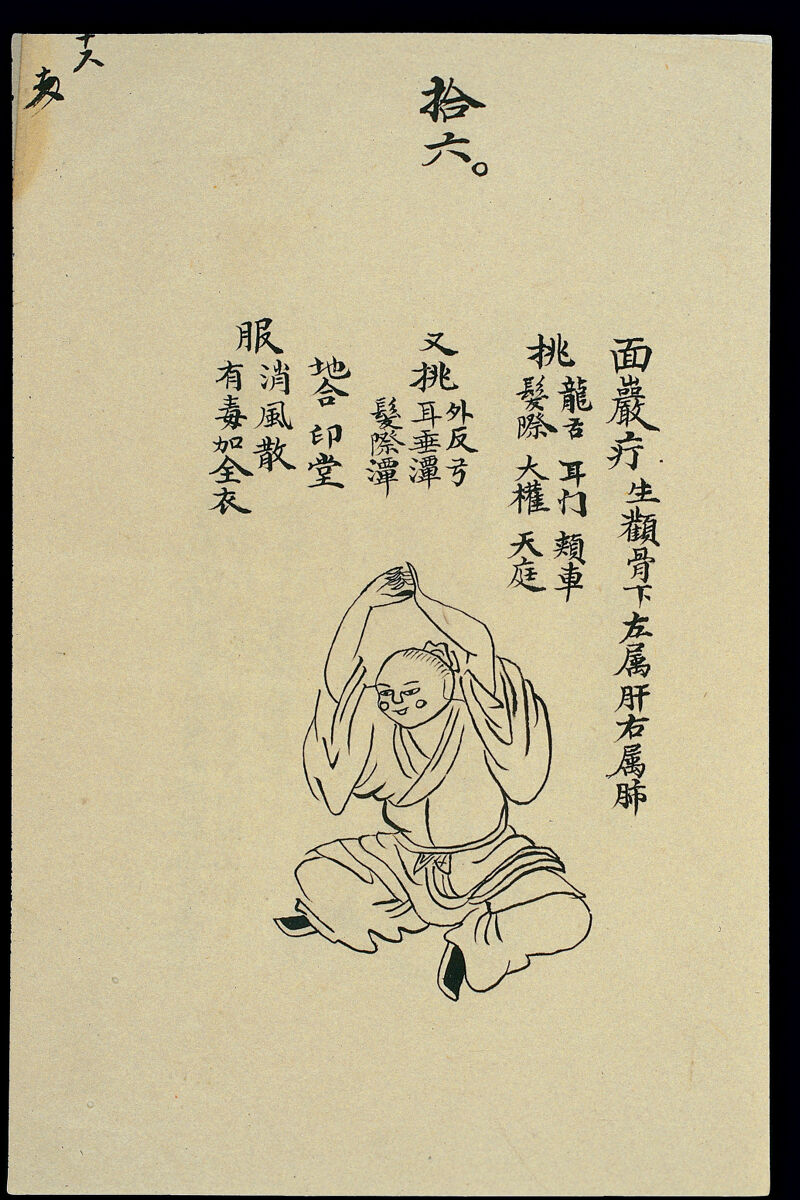 拾六。
面巖疔 生顴骨下左属肝右属肺
挑 龍舌 耳门 頬車
髮際 大權 天庭
又挑 外反弓
耳垂潭
髮際潭
地合 印堂
服 消風散
有毒加全衣
十八